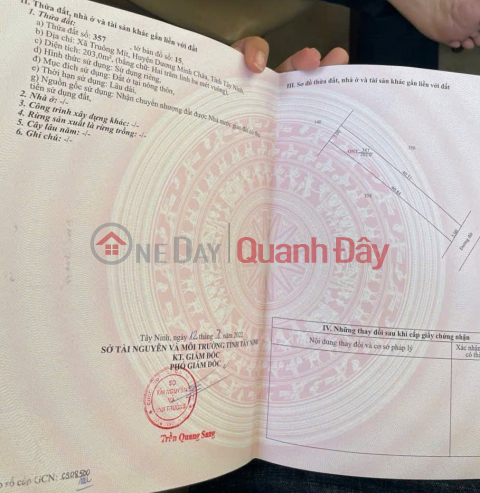 II. Thửa đất, nhà ở và tài sản khác gắn liền với đất
1. Thửa đất:
a) Thửa đất số: 357 , tờ bản đồ số: 15,
b) Địa chỉ: Xã Truông Mít, Huyện Dương Minh Châu, Tỉnh Tây Ninh,
c) Diện tích: 203,0m², (bằng chữ: Hai trăm linh ba mét vuông),
d) Hình thức sử dụng: Sử dụng riêng,
đ) Mục đích sử dụng: Đất ở tại nông thôn,
e) Thời hạn sử dụng: Lâu dài,
g) Nguồn gốc sử dụng: Nhận chuyển nhượng đất được Nhà nước giao đất có thu
tiền sử dụng đất,
2. Nhà ở: -/-
3. Công trình xây dựng khác: -/-
4. Rừng sản xuất là rừng trồng: -/-
5. Cây lâu năm: -/-
6. Ghi chú: -/-
Tây Ninh, ngày 12 tháng 7 năm 2022
SỞ TÀI NGUYÊN VÀ MÔI TRƯỜNG TỈNH TÂY NINH
KT. GIÁM ĐỐC
PHÓ GIÁM ĐỐC
SỞ
TÀI NGUYÊN
VÀ
MÔI TRƯỜNG
Trần Quang Sang
số cấp GCN:
III. Sơ đồ thửa đất, nhà ở và tài sản khác gắn liền với đất
357
Đường đất
IV. Những thay đổi sau khi cấp giấy chứng nhận
Nội dung thay đổi và cơ sở pháp lý
Xác nhận
có th
ONEDAY Quanh Đây